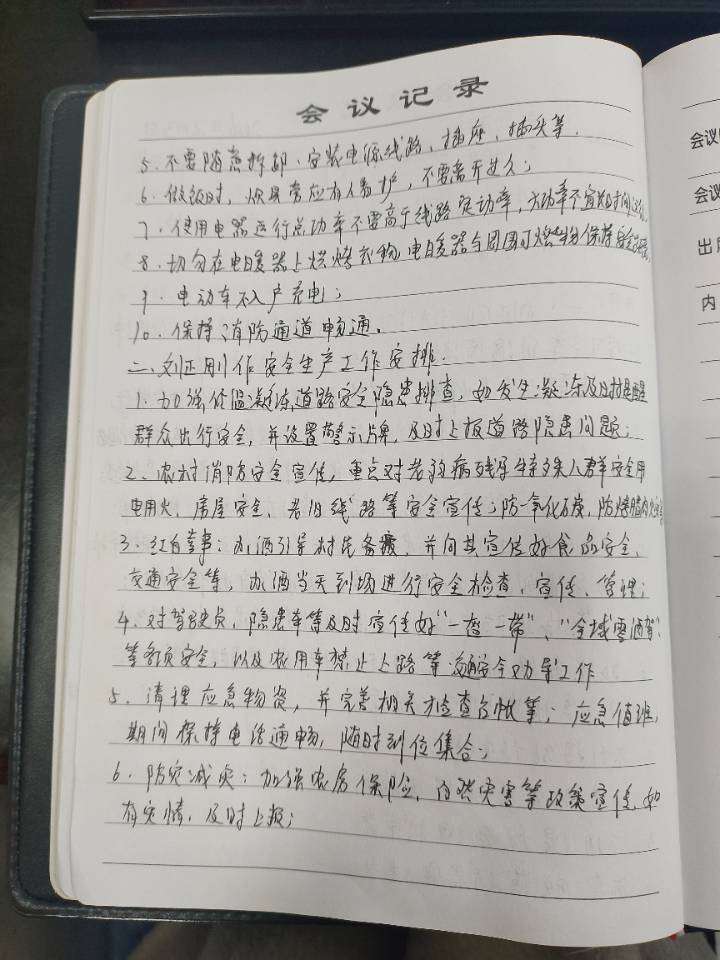 会议记录
5、不要随意拆卸、安装电源线路、插座、插头等.
6、做饭时,炊具旁应有人看护,不要离开过久;
7、使用电器运行总功率不要高于线路总功率,大功率不宜长时间
8、切勿在电暖器上烘烤衣物,电暖器全周围可燃物保持安全
9、电动车不入户充电;
10、保持消防通道畅通。
二、刘正刚作安全生产工作安排.
1、加强低温凝冻道路安全隐患排查,如发生凝冻及时提醒
群众出行安全,并设置警示牌,及时上报道路隐患问题;
2、农村消防安全宣传,重点对老弱病残孕等人群安全用
电用火、房屋安全、老旧线路等安全宣传;防一氧化碳,防烧腊肉
3、红白喜事:办酒引导村民备案,并向其宣传好食品安全、
交通安全等,办酒当天到场进行安全检查、宣传、管理;
4、对驾驶员,隐患车等及时宣传好“一盔一带”、“全域零酒驾”
等各负安全,以及农用车禁止上路等交通安全劝导工作
5、清理应急物资,并完善相关检查台帐等;应急值班,
期间保持电话通畅,随时到位集合;
6、防灾减灾:加强农房保险、自然灾害等政策宣传,如
有灾情,及时上报;
会议
会议
出
内